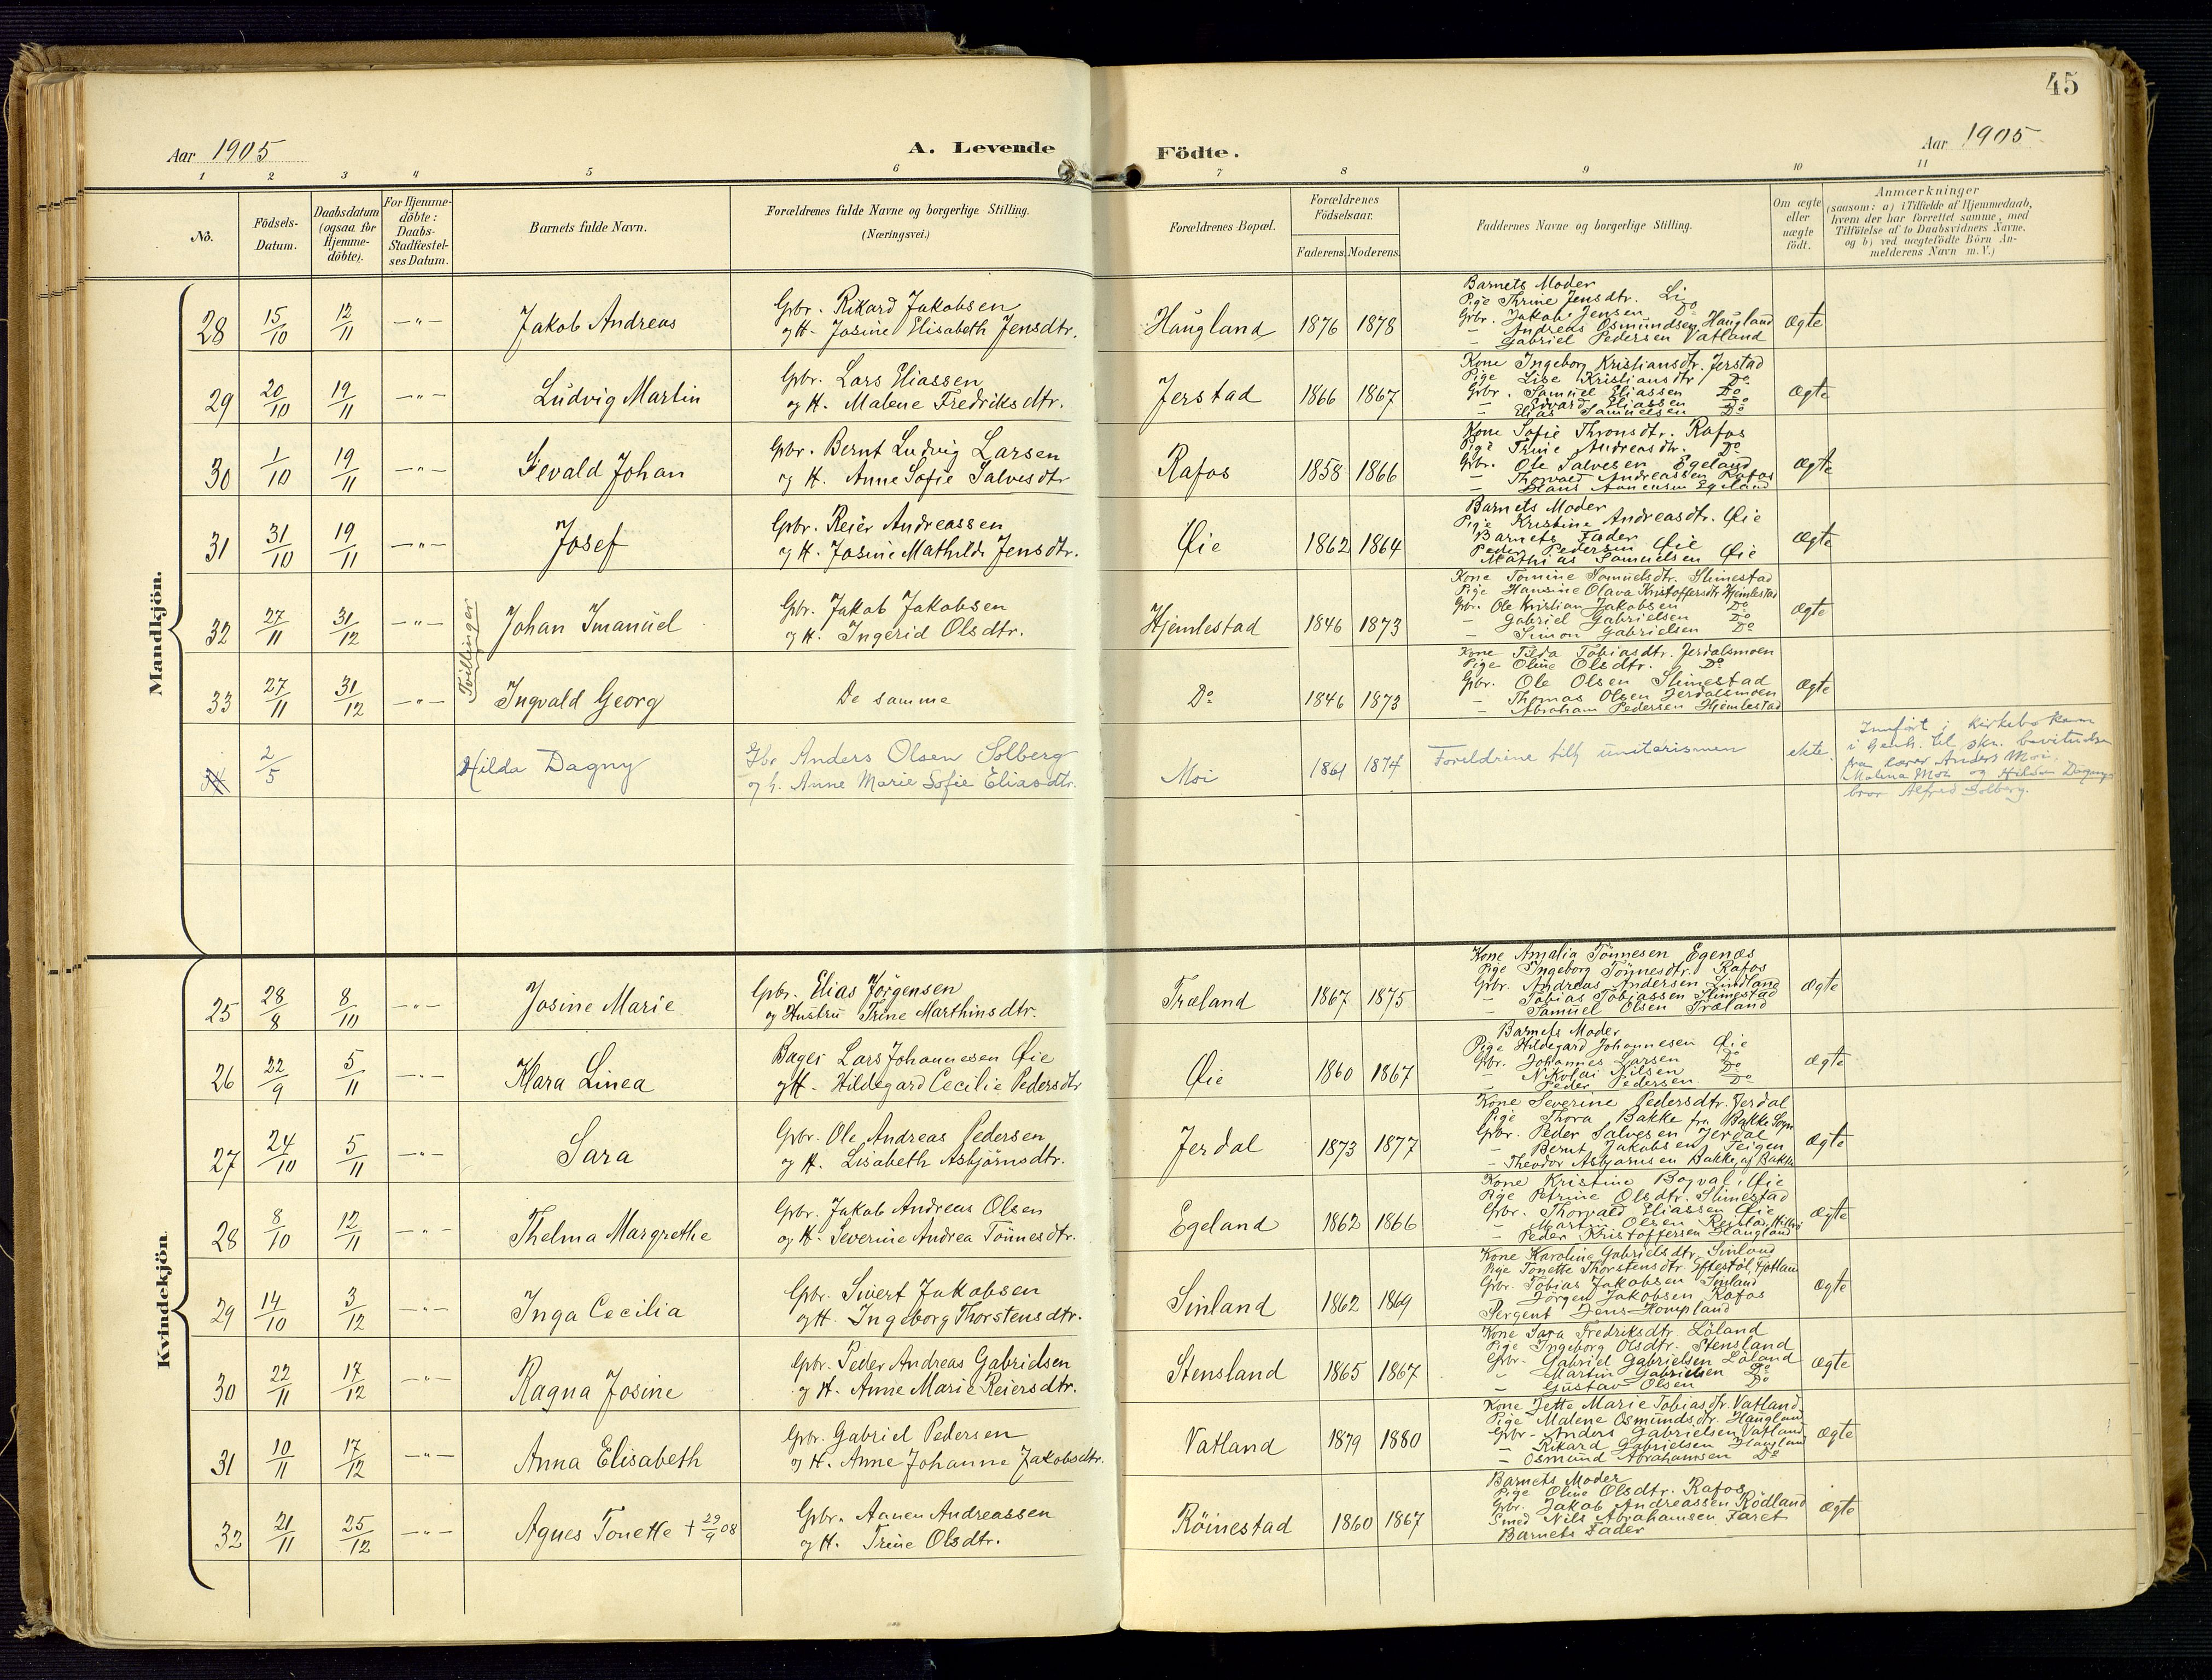 45
Aar 1905
A. Levende Födte.
Aar 1905
1 2 3 4 5 6 7 8 9 10 11
No.
Födsels-Datum.
Daabsdatum (ogsaa for Hjemme-döbte).
For Hjemme-döbte: Daabs-Stadfæstel-ses Datum.
Barnets fulde Navn.
Forældrenes fulde Navne og borgerlige Stilling.
(Næringsvei.)
Forældrenes Bopæl.
Forældrenes Födselsaar.
Faderens. Moderens.
Faddernes Navne og borgerlige Stilling.
Om ægte eller uægte födt.
Anmærkninger
(saasom: a) i Tilfælde af Hjemmedaab,
hvem der har forrettet samme, med
Tilföielse af to Daabsvidners Navne.
og b) ved uægtefödte Börn An-
melderens Navn m. V.)
Mandkjön.
28 15/10 12/11 —"— Jakob Andreas Gbr. Rikard Jakobsen
og H. Josine Elisabeth Jensdtr. Haugland 1876 1878
Barnets Moder
Pige Thrine Jensdtr. Li
Gbr. Jakob Jensen Do
— Andreas Osmundsen Haugland
— Gabriel Pedersen Vatland
Ægte
29 20/10 19/11 —"— Ludvig Martin Gbr. Lars Eliassen
og H. Malene Fredriksdtr. Jerstad 1866 1867
Kone Ingeborg Kristiansdtr. Jerstad
Pige Lise Kristiansdtr Do
Gbr. Samuel Eliassen Do
— Edvard Eliassen Do
— Elias Samuelsen Do
Ægte
30 1/10 19/11 —"— Sevald Johan Gbr. Bernt Ludvig Larsen
og H. Anne Sofie Salvesdtr Rafos 1858 1866
Kone Sofie Thronsdtr. Rafos
Pige Trine Andreasdtr. Do
Gbr. Ole Salvesen Egeland
— Thorvald Andreassen Rafos
— Hans Aanensen Egeland
Ægte
31 31/10 19/11 —"— Josef Gbr. Reier Andreassen
og H. Josine Mathilde Jensdtr. Øie 1862 1864
Barnets Moder
Pige Kristine Andreasdtr. Øie
Barnets Fader
Peder Pedersen Øie
Mathias Samuelsen Øie
Ægte
Tvillinger
32 27/11 31/12 —"— Johan Imanuel Gbr. Jakob Jakobsen
og H. Ingerid Olsdtr. Hjemlestad 1846 1873
Kone Tomine Samuelsdtr. Slimestad
Pige Hansine Olava Kristoffersdtr Hjemlestad
Gbr. Ole Kristian Jakobsen Do
— Gabriel Gabrielsen Do
— Simon Gabrielsen Do
Ægte
33 27/11 31/12 —"— Ingvald Georg De samme Do 1846 1873
Kone Tilda Tobiasdtr. Jerdalsmoen
Pige Oline Olsdtr. Do
Gbr. Ole Olsen Slimestad
— Thomas Olsen Jerdalsmoen
— Abraham Pedersen Hjemlestad
Ægte
2/5 Hilda Dagny Gbr Anders Olsen Solberg
og h. Anne Marie Sofie Eliasdtr. Moi 1861 1874 Foreldrine tilh unitarismen ekte
Innført i kirkeboken
i henh. til skr. bevitnelse
fra lærer Anders Moi,
Malena Moi og Hilda Dagnys
bror Alfred Solberg.
Kvindekjön.
25 28/8 8/10 —"— Josine Marie Gbr. Elias Jörgensen
og Hustru Trine Marthinsdtr. Træland 1867 1875
Kone Amalia Tönnesen Egenæs
Pige Ingeborg Tönnesdtr. Rafos
Gbr. Andreas Andersen Lindland
— Tobias Tobiassen Slimestad
— Samuel Olsen Træland
Ægte
26 22/9 5/11 —"— Klara Linea Bager Lars Johannesen Øie
og H. Hildegard Cecilie Pedersdtr Øie 1860 1867
Barnets Moder
Pige Hildegard Johannesen Øie
Gbr. Johannes Larsen Do
— Nikolai Nilsen Do
— Peder Pedersen Do
Ægte
27 24/10 5/11 —"— Sara Gbr. Ole Andreas Pedersen
og H. Lisabeth Asbjörnsdtr. Jerdal 1873 1877
Kone Severine Pedersdtr. Jerdal
Pige Thora Bakke fra Bakke Sogn
Gbr. Peder Salvesen Jerdal
— Bernt Jakobsen Teigen
— Theodor Asbjörnsen Bakke, af Bakke
Ægte
28 8/10 12/11 —"— Thelma Margrethe Gbr. Jakob Andreas Olsen
og H. Severine Andrea Tönnesdtr. Egeland 1862 1866
Kone Kristine Bogval, Øie
Pige Petrine Olsdtr. Slimestad
Gbr. Thorvald Eliassen Øie
— Martin Olsen
— Peder Kristoffersen Haugland
Ægte
29 14/10 3/12 —"— Inga Cecilia Gbr. Sivert Jakobsen
og H. Ingeborg Thorstensdtr. Sinland 1862 1869
Kone Karoline Gabrielsdtr. Sinland
Pige Tonette Thorstensdtr. Eftestøl, Fjotland
Gbr. Tobias Jakobsen Sinland
— Jörgen Jakobsen Rafos
Sergent Jens Hompland
Ægte
30 22/11 17/12 —"— Ragna Josine Gbr. Peder Andreas Gabrielsen
og H. Anne Marie Reiersdtr. Stensland 1865 1867
Kone Sara Fredriksdtr. Löland
Pige Ingeborg Olsdtr. Stensland
Gbr. Gabriel Gabrielsen Löland
— Martin Gabrielsen Do
— Gustav Olsen Do
Ægte
31 10/11 17/12 —"— Anna Elisabeth Gbr. Gabriel Pedersen
og H. Anne Johanne Jakobsdtr. Vatland 1879 1880
Kone Jette Marie Tobiasdtr. Vatland
Pige Malene Osmundsdtr. Haugland
Gbr. Anders Gabrielsen Vatland
— Rikard Gabrielsen Haugland
— Osmund Abrahamsen Do
Ægte
32 21/11 25/12 —"— Agnes Tonette † 29/9 08 Gbr. Aanen Andreassen
og H. Trine Olsdtr. Röinestad 1860 1867
Barnets Moder
Pige Oline Olsdtr. Rafos
Gbr. Jakob Andreassen Rödland
Smed Nils Abrahamsen Faret
Barnets Fader
Ægte